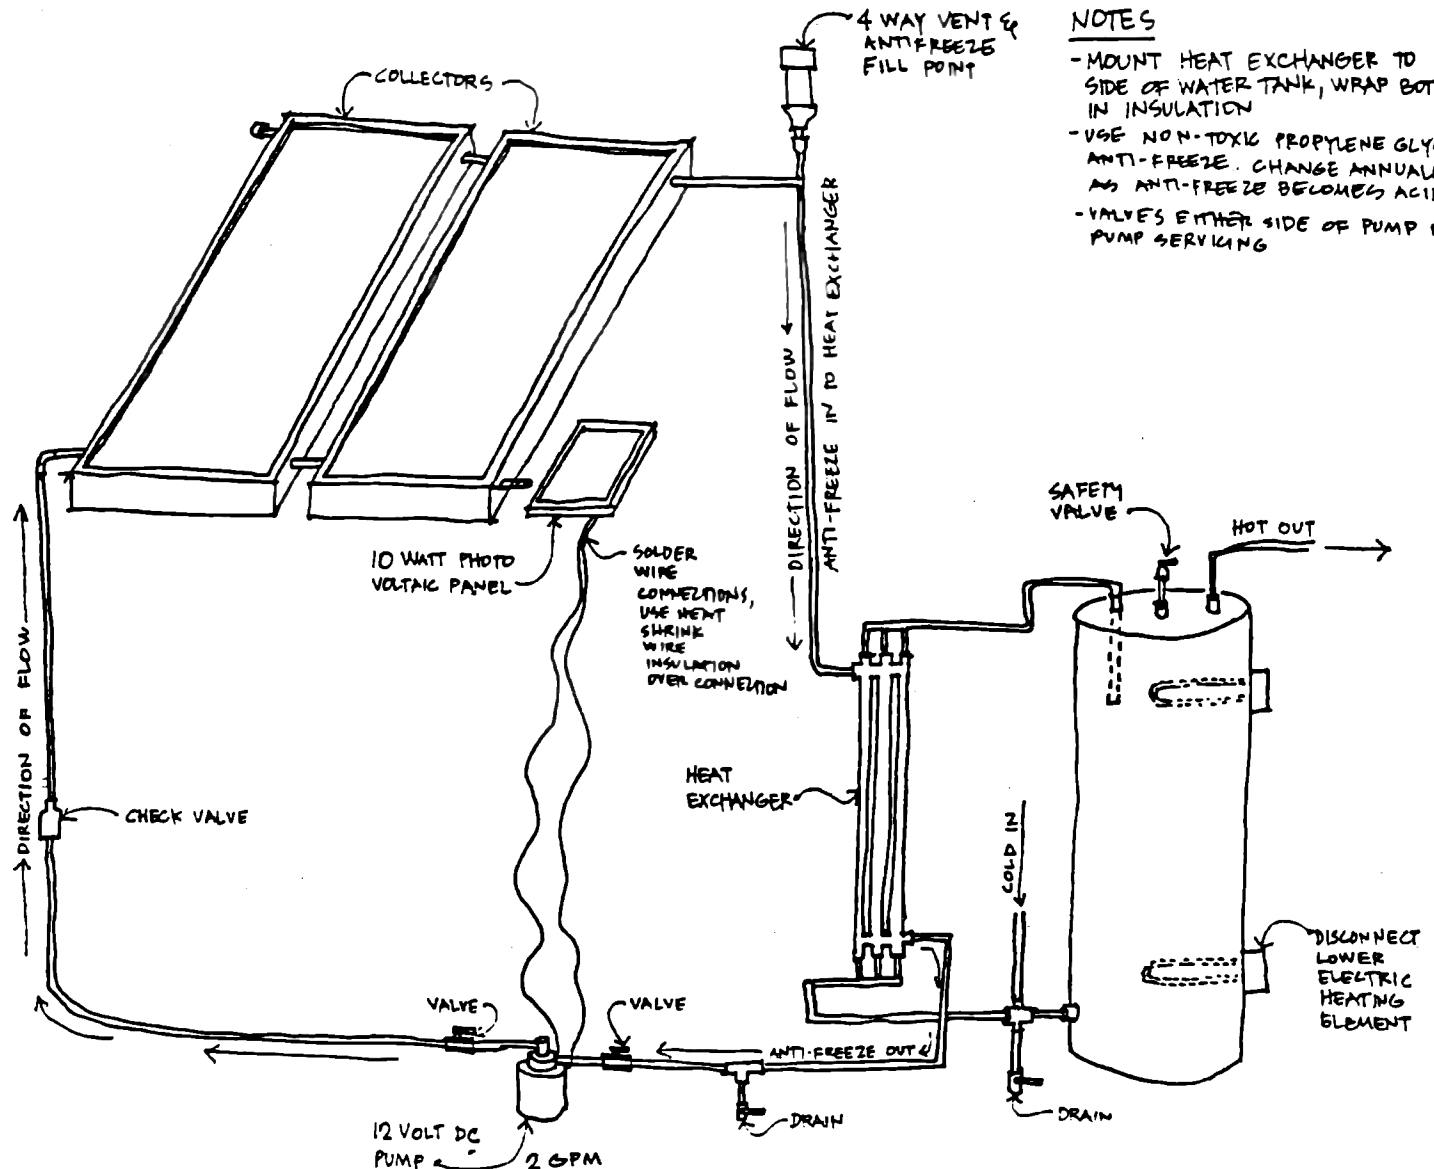 4 WAY VENT &
ANTIFREEZE
FILL POINT
NOTES
- MOUNT HEAT EXCHANGER TO
SIDE OF WATER TANK, WRAP BOT
IN INSULATION
- USE NON-TOXIC PROPYLENE GLY
ANTI-FREEZE. CHANGE ANNUAL
AS ANTI-FREEZE BECOMES ACI
- VALVES EITHER SIDE OF PUMP
PUMP SERVICING
COLLECTORS
DIRECTION OF FLOW
ANTI-FREEZE IN TO HEAT EXCHANGER
10 WATT PHOTO
VOLTAIC PANEL
SOLDER
WIRE
CONNECTIONS,
USE HEAT
SHRINK
WIRE
INSULATION
OVER CONNECTION
SAFETY
VALVE
HOT OUT
DIRECTION OF FLOW
CHECK VALVE
HEAT
EXCHANGER
COLD IN
DISCONNECT
LOWER
ELECTRIC
HEATING
ELEMENT
VALVE
VALVE
ANTI-FREEZE OUT
DRAIN
DRAIN
12 VOLT DC
PUMP 2 GPM